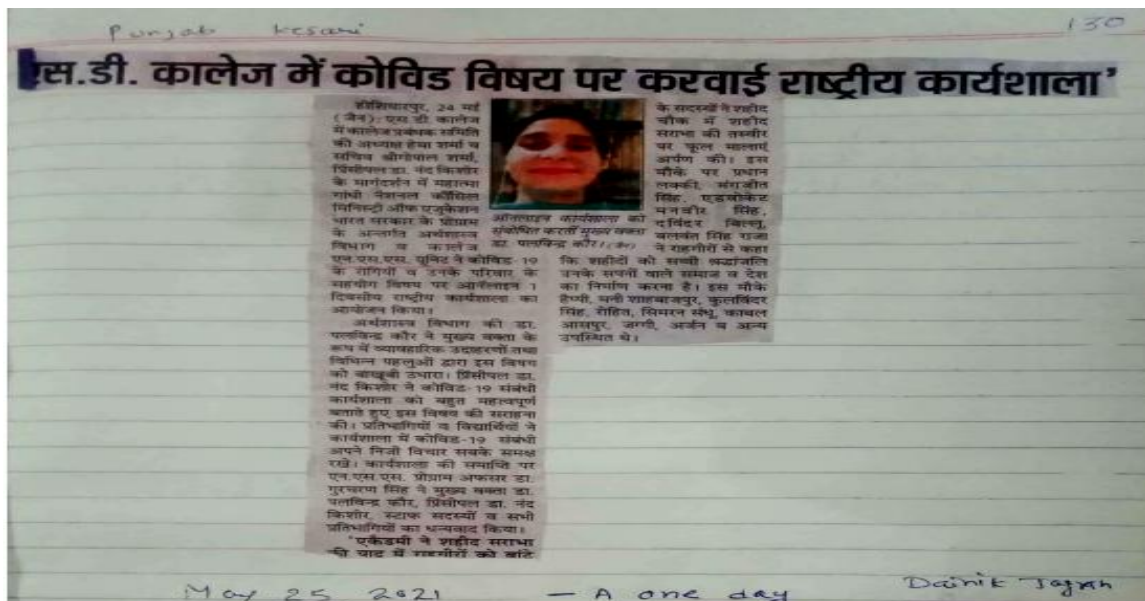 Punjab Kesari
130
एस.डी. कालेज में कोविड विषय पर करवाई राष्ट्रीय कार्यशाला'
होशियारपुर, 24 मई
(जैन): एस.डी. कालेज
में कालेज प्रबंधक समिति
की अध्यक्ष हेमा शर्मा व
सचिव श्रीगोपाल शर्मा,
प्रिंसीपल डा. नंद किशोर
के मार्गदर्शन में महात्मा
गांधी नैशनल काौंसिल
मिनिस्ट्री ऑफ एजुकेशन
भारत सरकार के प्रोग्राम
के अन्तर्गत अर्थशास्त्र
विभाग व कालेज
एन.एस.एस. यूनिट ने कोविड-19
के रोगियों व उनके परिवार के
सहयोग विषय पर ऑनलाइन 1
दिवसीय राष्ट्रीय कार्यशाला का
आयोजन किया।
अर्थशास्त्र विभाग की डा.
पलविन्द्र कौर ने मुख्य वक्ता के
रूप में व्यावहारिक उदाहरणों तथा
विभिन्न पहलुओं द्वारा इस विषय
को बाखूबी उभारा। प्रिंसीपल डा.
नंद किशोर ने कोविड-19 संबंधी
कार्यशाला को बहुत महत्वपूर्ण
बताते हुए इस विषय की सराहना
की। प्रतिभागियों व विद्यार्थियों ने
कार्यशाला में कोविड-19 संबंधी
अपने निजी विचार सबके समक्ष
रखे। कार्यशाला की समाप्ति पर
एन.एस.एस. प्रोग्राम अफसर डा.
गुरचरण सिंह ने मुख्य वक्ता डा.
पलविन्द्र कौर, प्रिंसीपल डा. नंद
किशोर, स्टाफ सदस्यों व सभी
प्रतिभागियों का धन्यवाद किया।
'एकैडमी ने शहीद सराभा
की याद में राहगीरों को बांटे
ऑनलाइन कार्यशाला को
संबोधित करतीं मुख्य वक्ता
डा. पलविन्द्र कौर। (जैन)
के सदस्यों ने शहीद
चौक में शहीद
सराभा की तस्वीर
पर फूल मालाएं
अर्पण की। इस
मौके पर प्रधान
लक्की, मंगजीत
सिंह, एडवोकेट
मनबीर सिंह,
दविंदर बिल्लु,
बलवंत सिंह राजा
ने राहगीरों से कहा
कि शहीदों को सच्ची श्रद्धांजलि
उनके सपनों वाले समाज व देश
का निर्माण करना है। इस मौके
हैप्पी, मनी शाहबाजपुर, कुलविंदर
सिंह, रोहित, सिमरन संधू, काबल
आसपुर, जग्गी, अर्जन व अन्य
उपस्थित थे।
May 25 2021 — A one day
Dainik Jagran